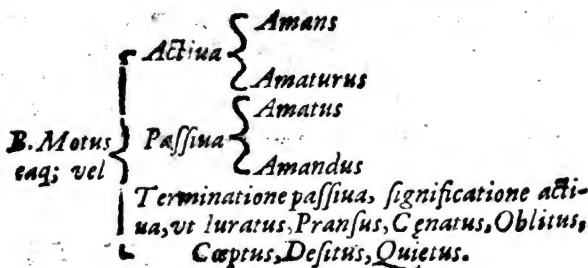 Amans
Actiua
Amaturus
Amatus
B. Motus
Paſſiua
eaq; vel
Amandus
Terminatione paſſiua, ſignificatione acti-
ua, vt Iuratus, Pranſus, Cęnatus, Oblitus,
Cœptus, Deſitus, Quietus.